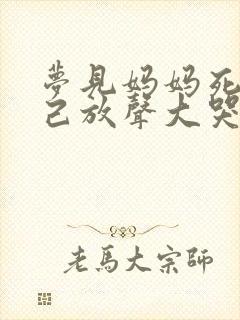 夢見妈妈死
己放聲大哭
老馬大宗師